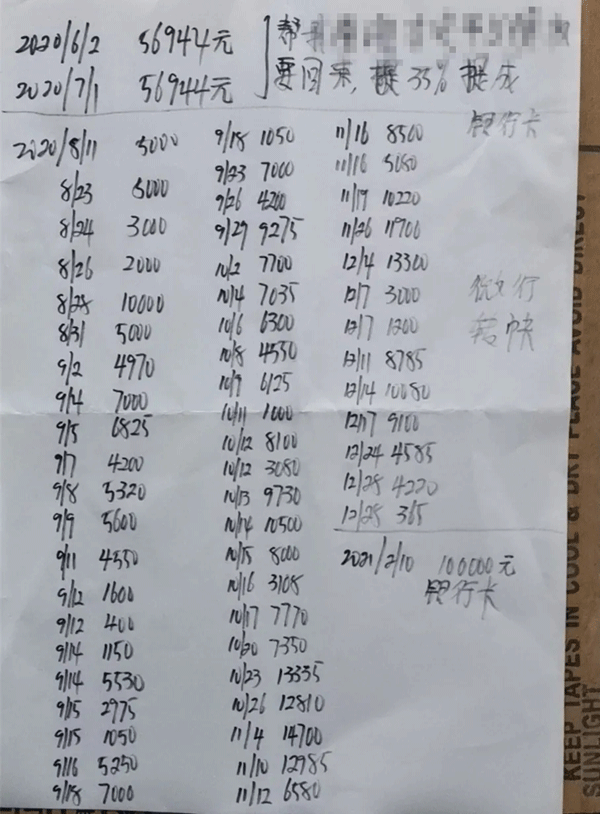 2020/6/2 56944元
2020/7/1 56944元
帮
要回来,提35%提成
2020/8/11 5000
8/23 5000
8/24 3000
8/26 2000
8/28 10000
8/31 5000
9/2 4970
9/4 7000
9/5 6825
9/7 4200
9/8 5320
9/9 5600
9/11 4550
9/12 1600
9/12 400
9/14 1150
9/14 5530
9/15 2975
9/15 1050
9/16 5250
9/18 7000
9/18 1050
9/23 7000
9/26 4200
9/29 9275
10/2 7700
10/4 7035
10/6 6300
10/8 4550
10/9 6125
10/11 1000
10/12 8100
10/12 3080
10/13 9730
10/14 10500
10/15 8000
10/16 3108
10/17 7770
10/20 7350
10/23 13335
10/26 12810
11/4 14700
11/10 12985
11/12 6580
11/16 8500
11/16 5050
11/19 10220
11/26 11900
12/4 13300
12/7 3000
12/7 1200
12/11 8785
12/14 10080
12/17 9100
12/24 4585
12/28 4220
12/28 365
银行卡
2021/2/10 100000元
银行卡
KEEP TAPES IN COOL & DRY PLACE AVOID DIRECT
SUNLIGHT